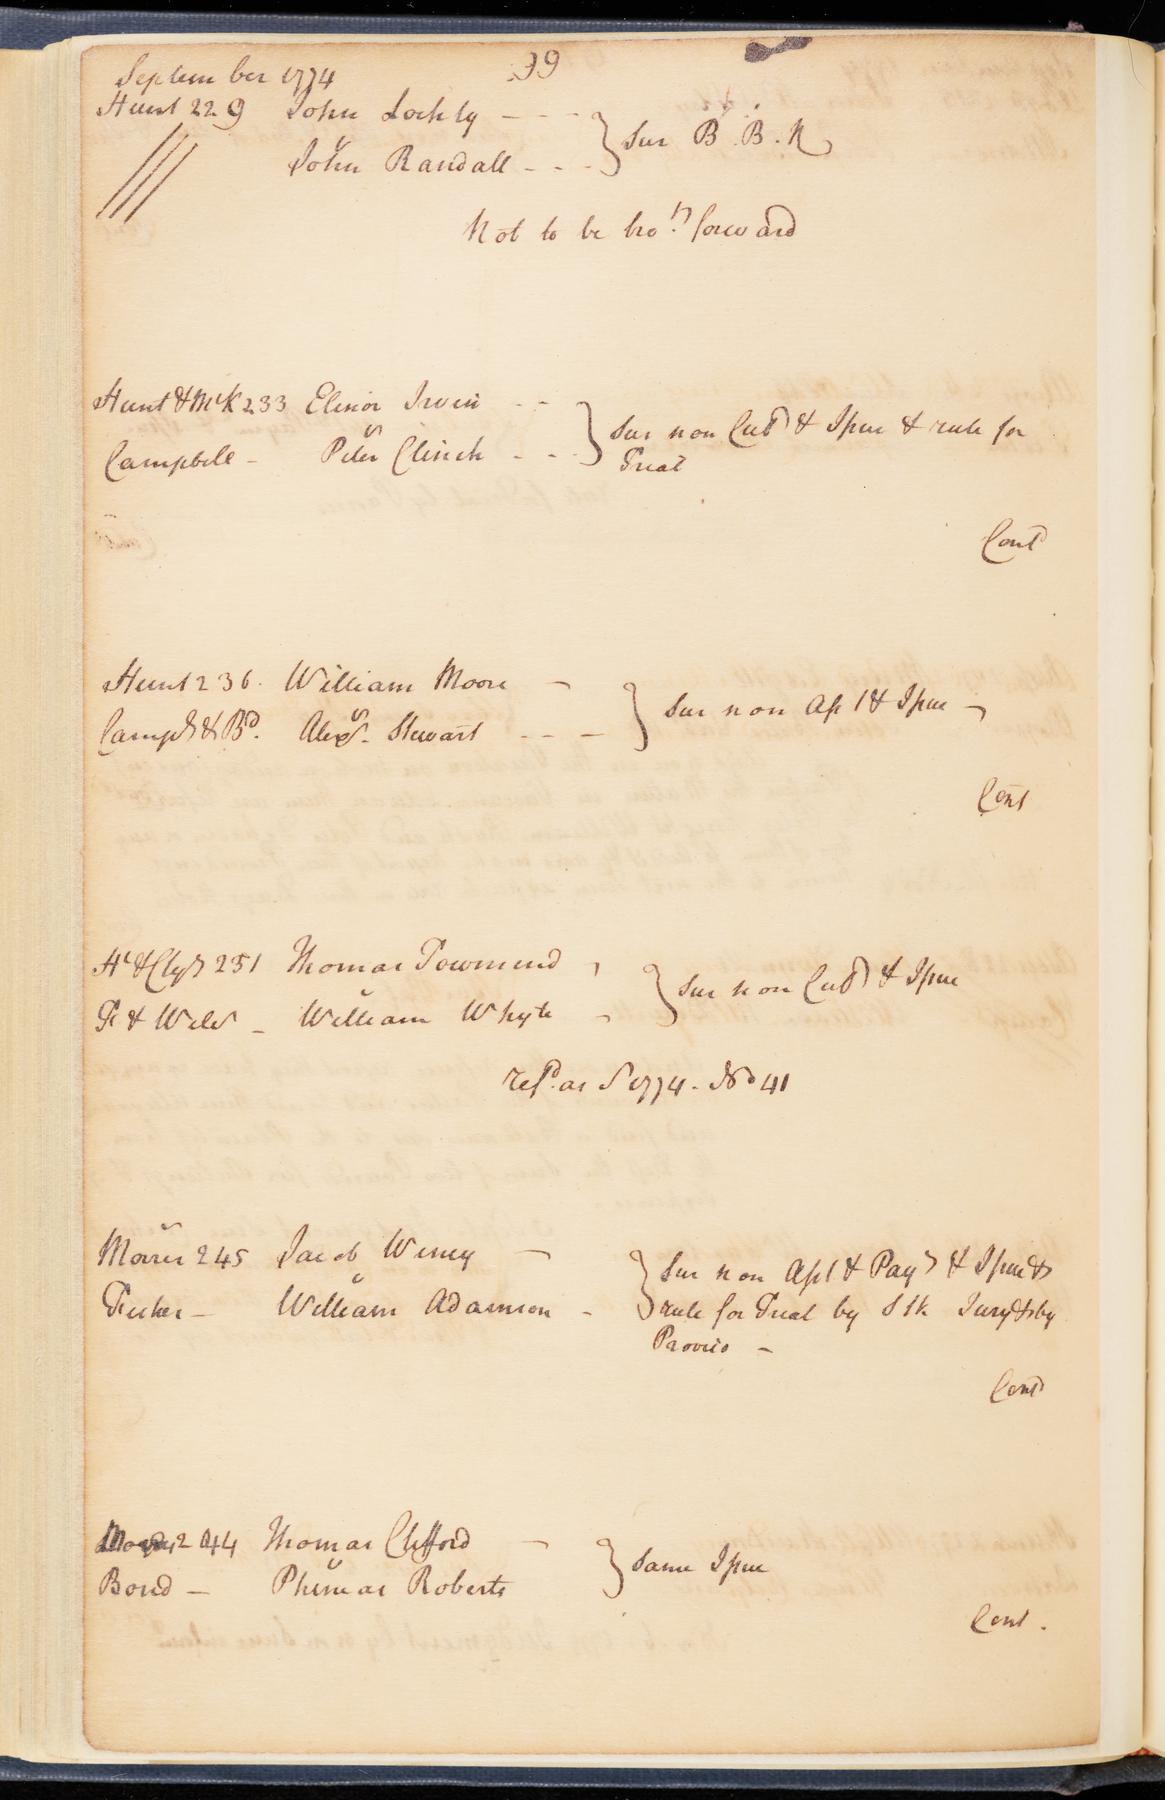 September 1774 39
Hunt 229 John Lockly - - -
v
John Randall - - - } Sur B. B. R
Not to be bro.t forward
Hunt & McK 233 Elinor Irvin - -
v
Campbell - Peter Clinch - - - } Sur non Cul & Issue & rule for
Trial
Cont
Hunt 236. William Moore -
v
Camp & Bd. Alexr. Stewart - - - } Sur non Ass & Issue -
Cont
251 Thomas Townsend
v
William Whyte } Sur non Cul & Issue
refd. as S 1774. No 41
Morris 245 Jacob Winey -
v
William Adamson - } Sur non Asst & Pay & Issue &
rule for Trial by Jury & by
Proviso -
Cont
244 Thomas Clifford -
v
Bond - Phineas Roberts } Same Issue
Cont.